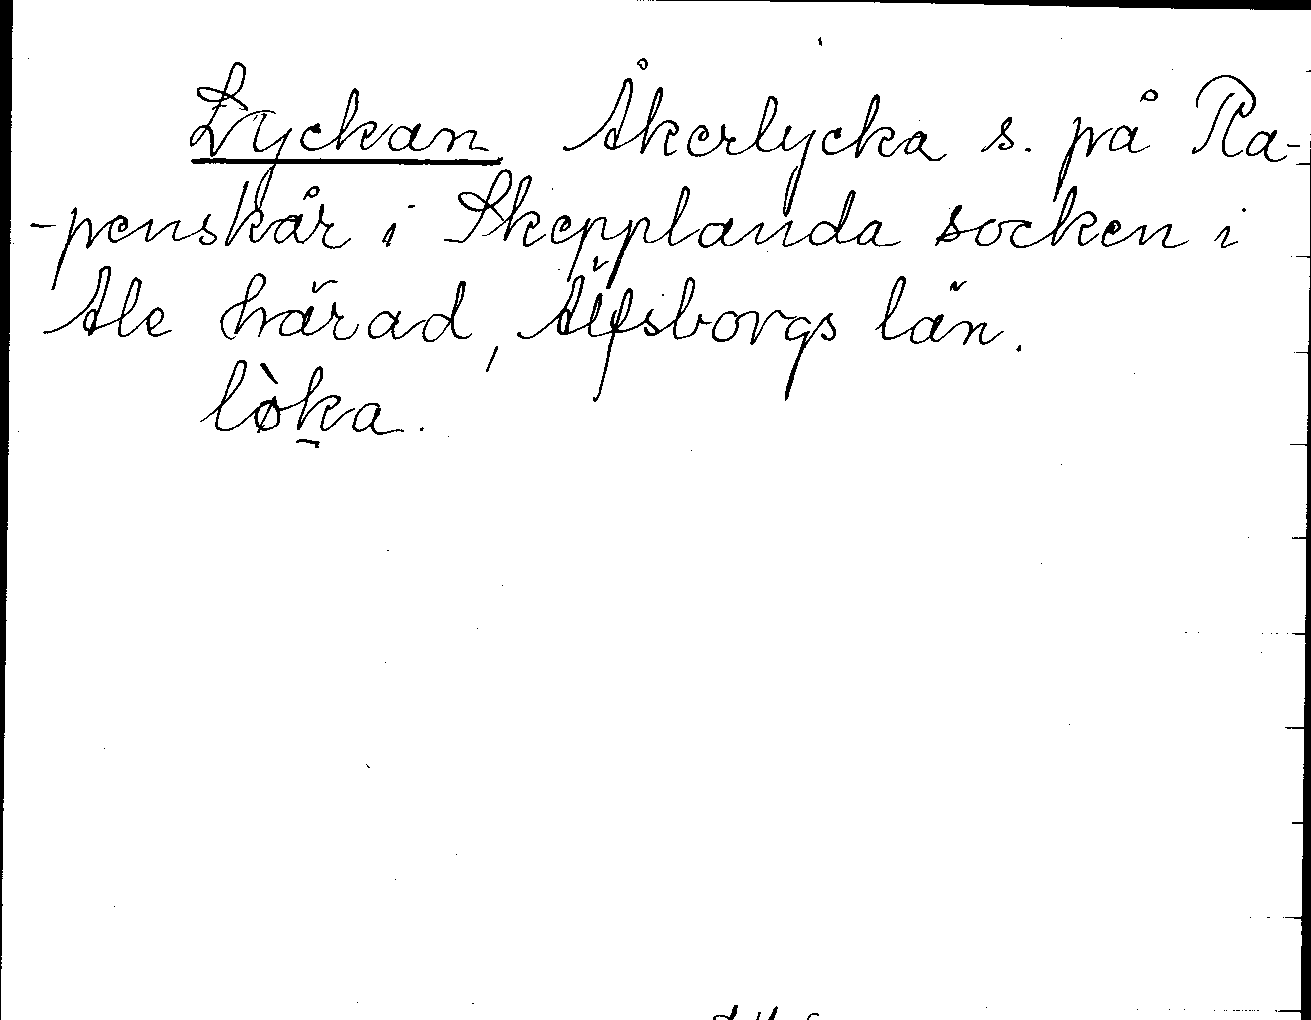 Lyckan Åkerlycka s. på Ra-
-penskår i Skepplanda socken i
Ale härad, Älfsborgs län.
lø̀ka.